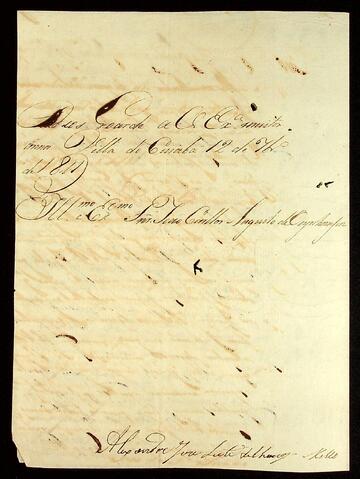 Deos Guarde a V. Exª muitos
annos Villa de Cuiabá 12 de 7bro
de 18
Illmo e Exmo Snr. João Carlos Augusto de Oeynhausen
Alexandre Joze Leite de Chaves Mello